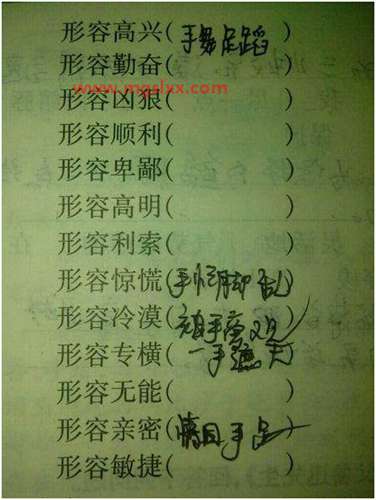 形容高兴(手舞足蹈)
形容勤奋( )
www.mgslxx.com
形容凶狠( )
形容顺利( )
形容卑鄙( )
形容高明( )
形容利索( )
形容惊慌(手忙脚乱)
形容冷漠(袖手旁观)
形容专横(一手遮天)
形容无能( )
形容亲密(情同手足)
形容敏捷( )